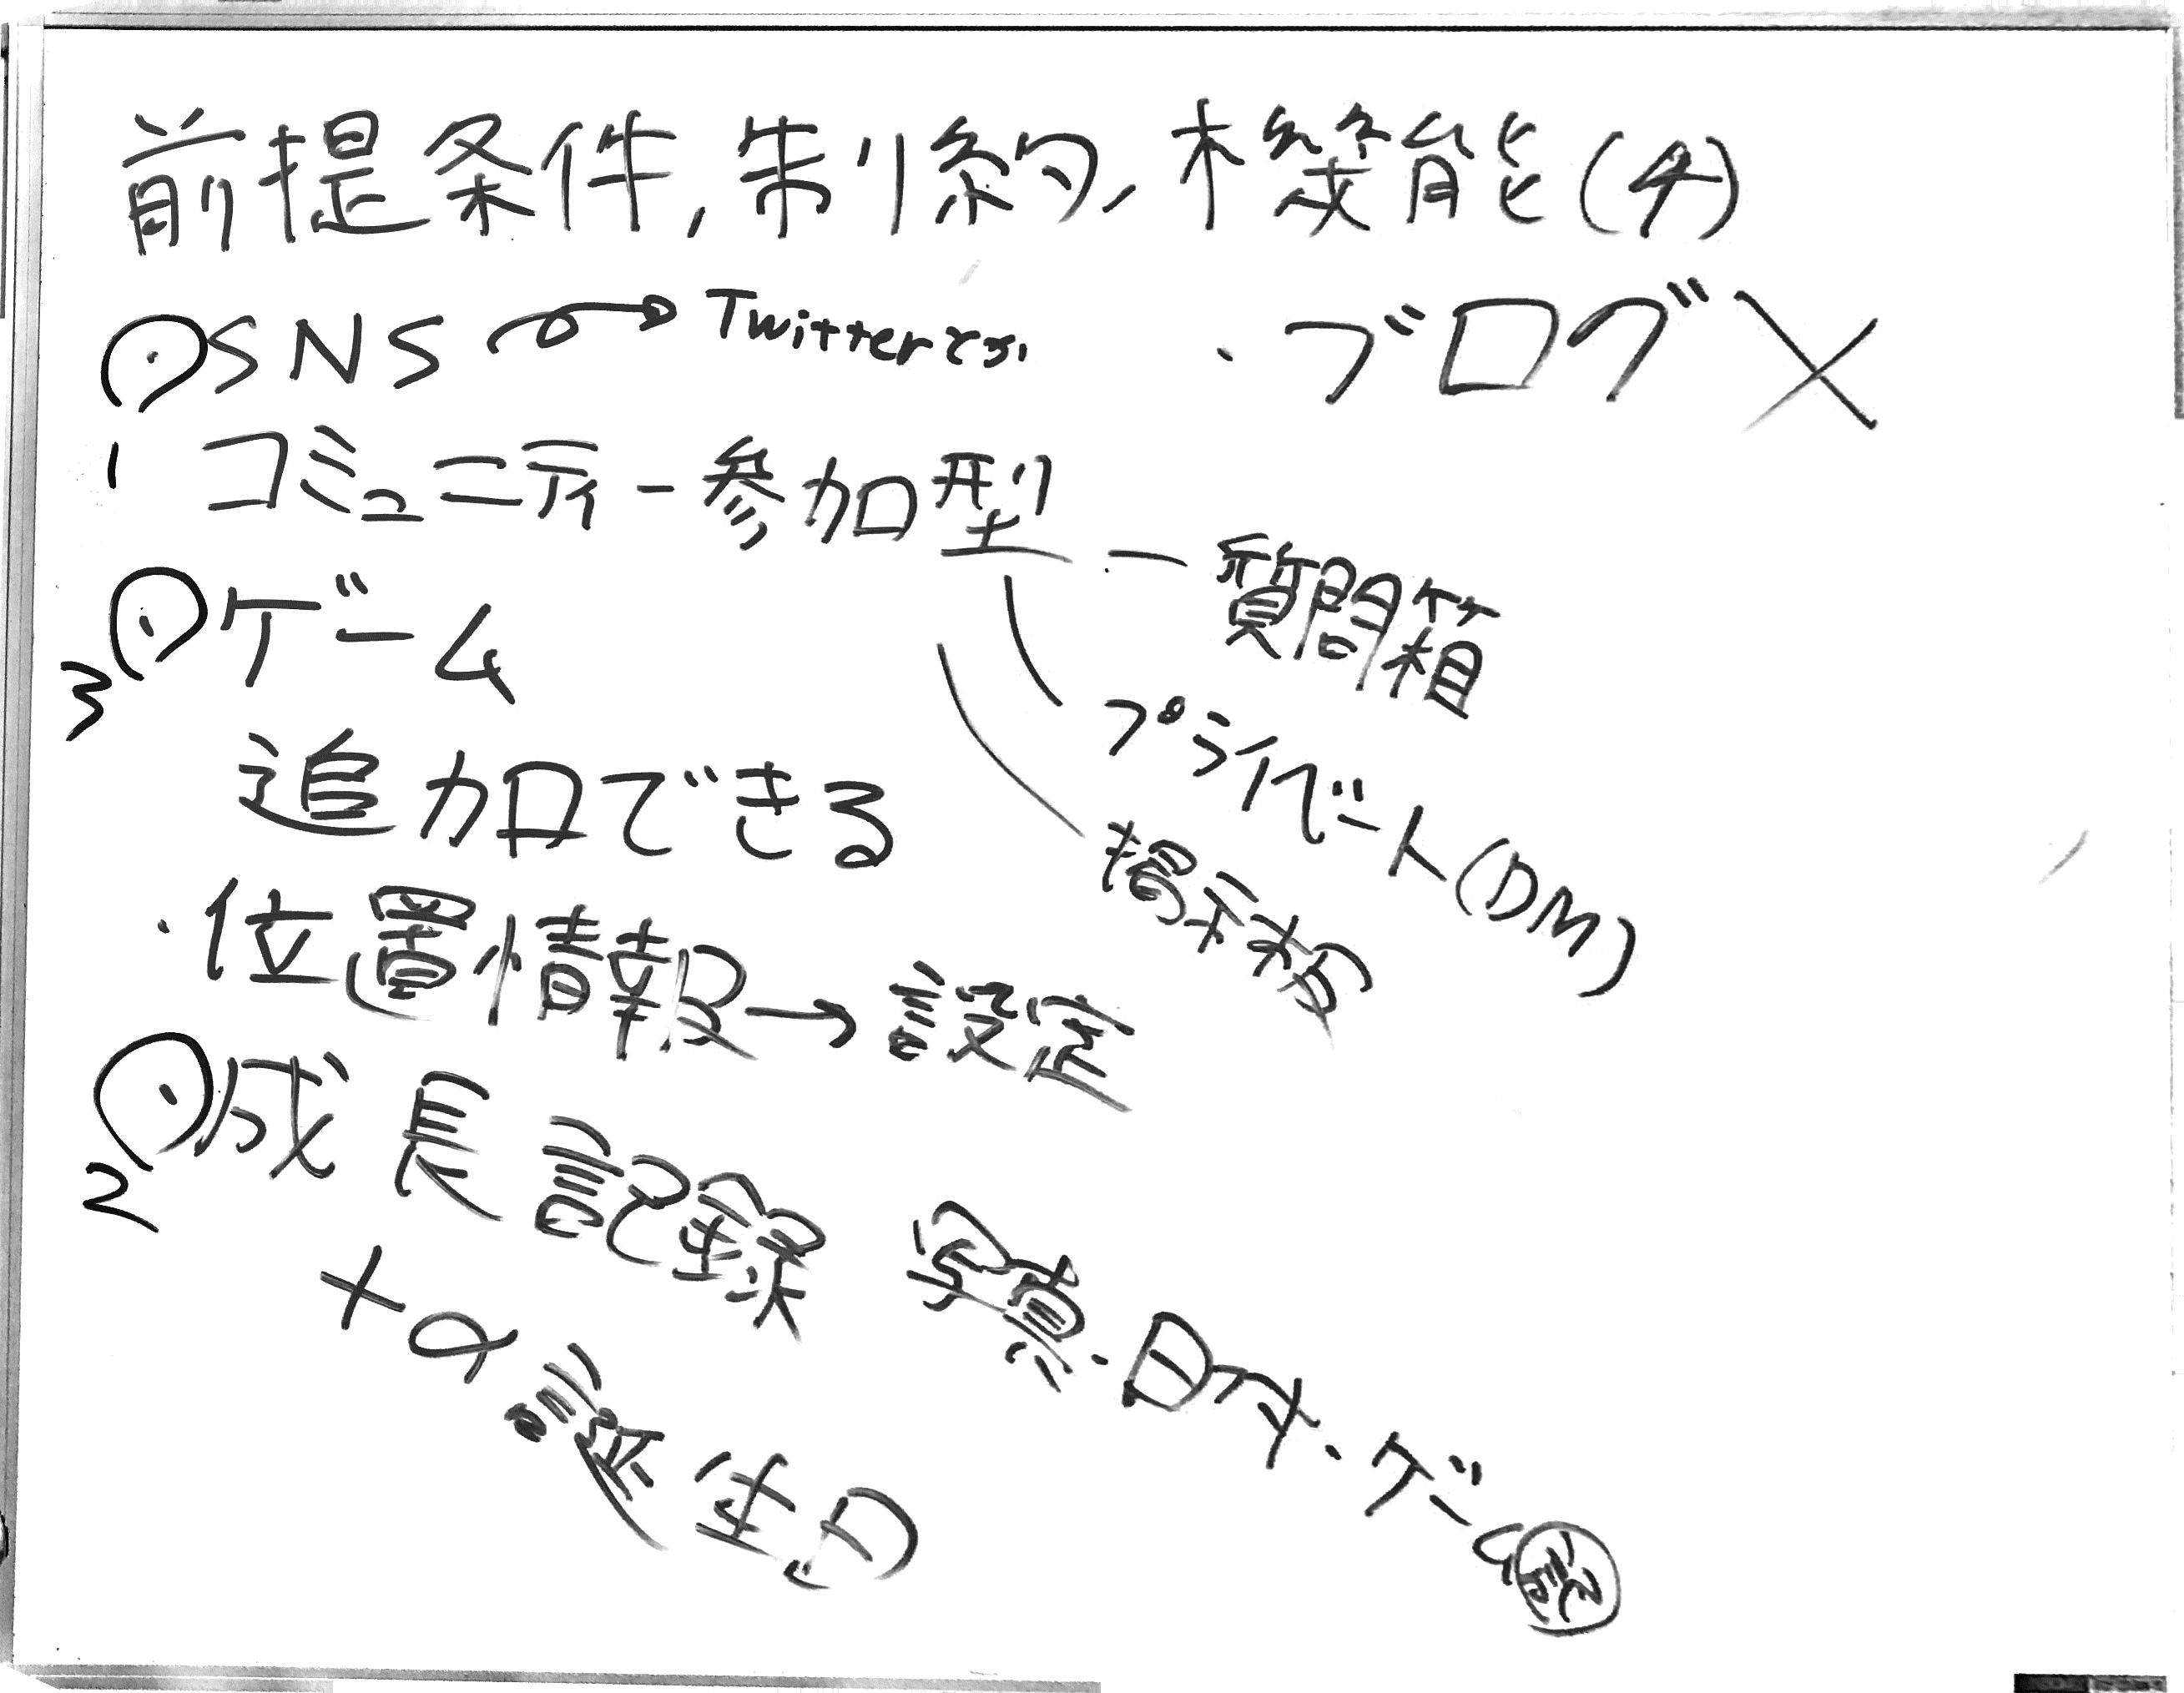 前提条件,制約,機能(チ)
SNS → Twitterとか
・ブログ×
1 コミュニティー参加型
ー質問箱
プライベート(DM)
掲示板
3 ゲーム
追加できる
・位置情報→設定
2 成長記録
写真・日付・ゲーム
+α 誕生日